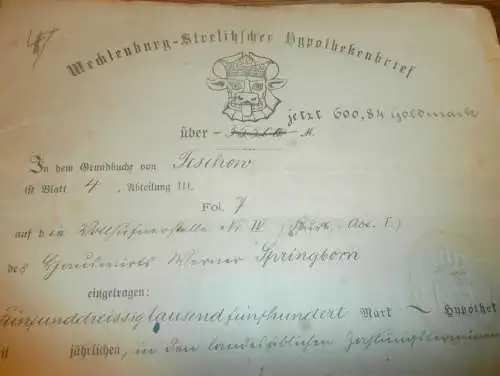 Mecklenburg-Strelitzscher Hypothekenbrief
jetzt 600,84 Goldmark
über M.
In dem Grundbuche von Teschow
ist Blatt 4, Abteilung III.
Fol. 7
auf die Vollhufnerstelle № IV
des Hauswirts Werner Springborn
eingetragen:
Fünfunddreissigtausendfünfhundert Mark ~ Hypothek
jährlichen, in den landesüblichen Zahlungsterminen